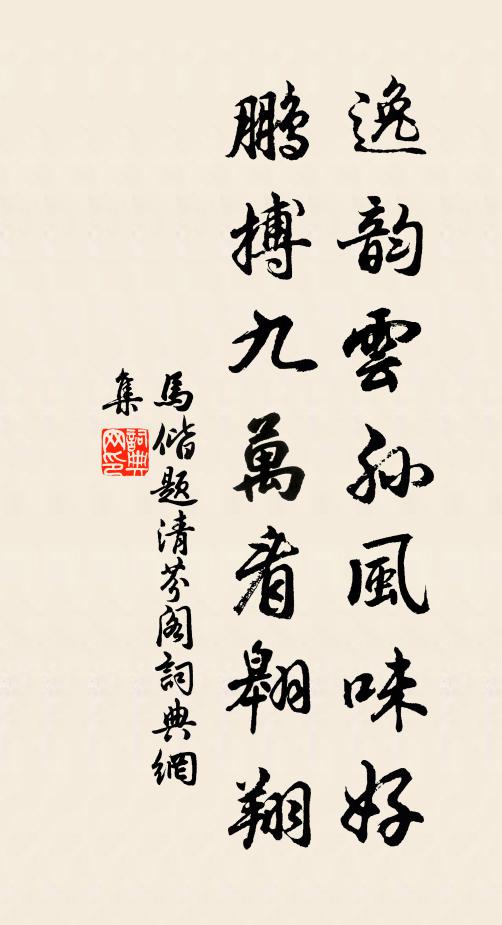 逸韵雲孙風味好
鵬搏九萬看翱翔
馬偕题清芬阁詞典網
集
詞典
网印